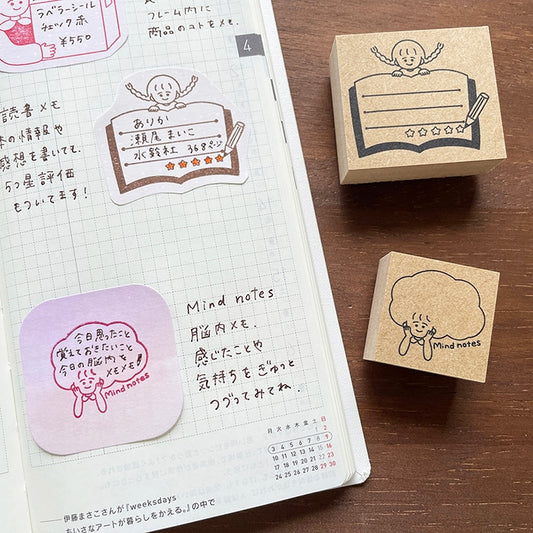 ラベラーシール
チェック赤
¥550
フレーム内に
商品のコトをメモ。
4
読書メモ
本の情報や
感想を書いても。
5つ星評価
もついてます!
ありか
瀬尾まいこ
水鈴社 368ページ
今日思ったこと
覚えておきたいこと
今日の脳内を
メモメモ!!
Mind notes
Mind notes
脳内メモ。
感じたことや
気持ちをぎゅっと
つづってみてね。
月 火 水 木 金 土 日
1 2
3 4 5 6 7 8 9
10 11 12 13 14 15 16
17 18 19 20 21 22 23
24 25 26 27 28 29 30
伊藤まさこさんが『weeksdays
ちいさなアートが暮らしをかえる。』の中で
Mind notes